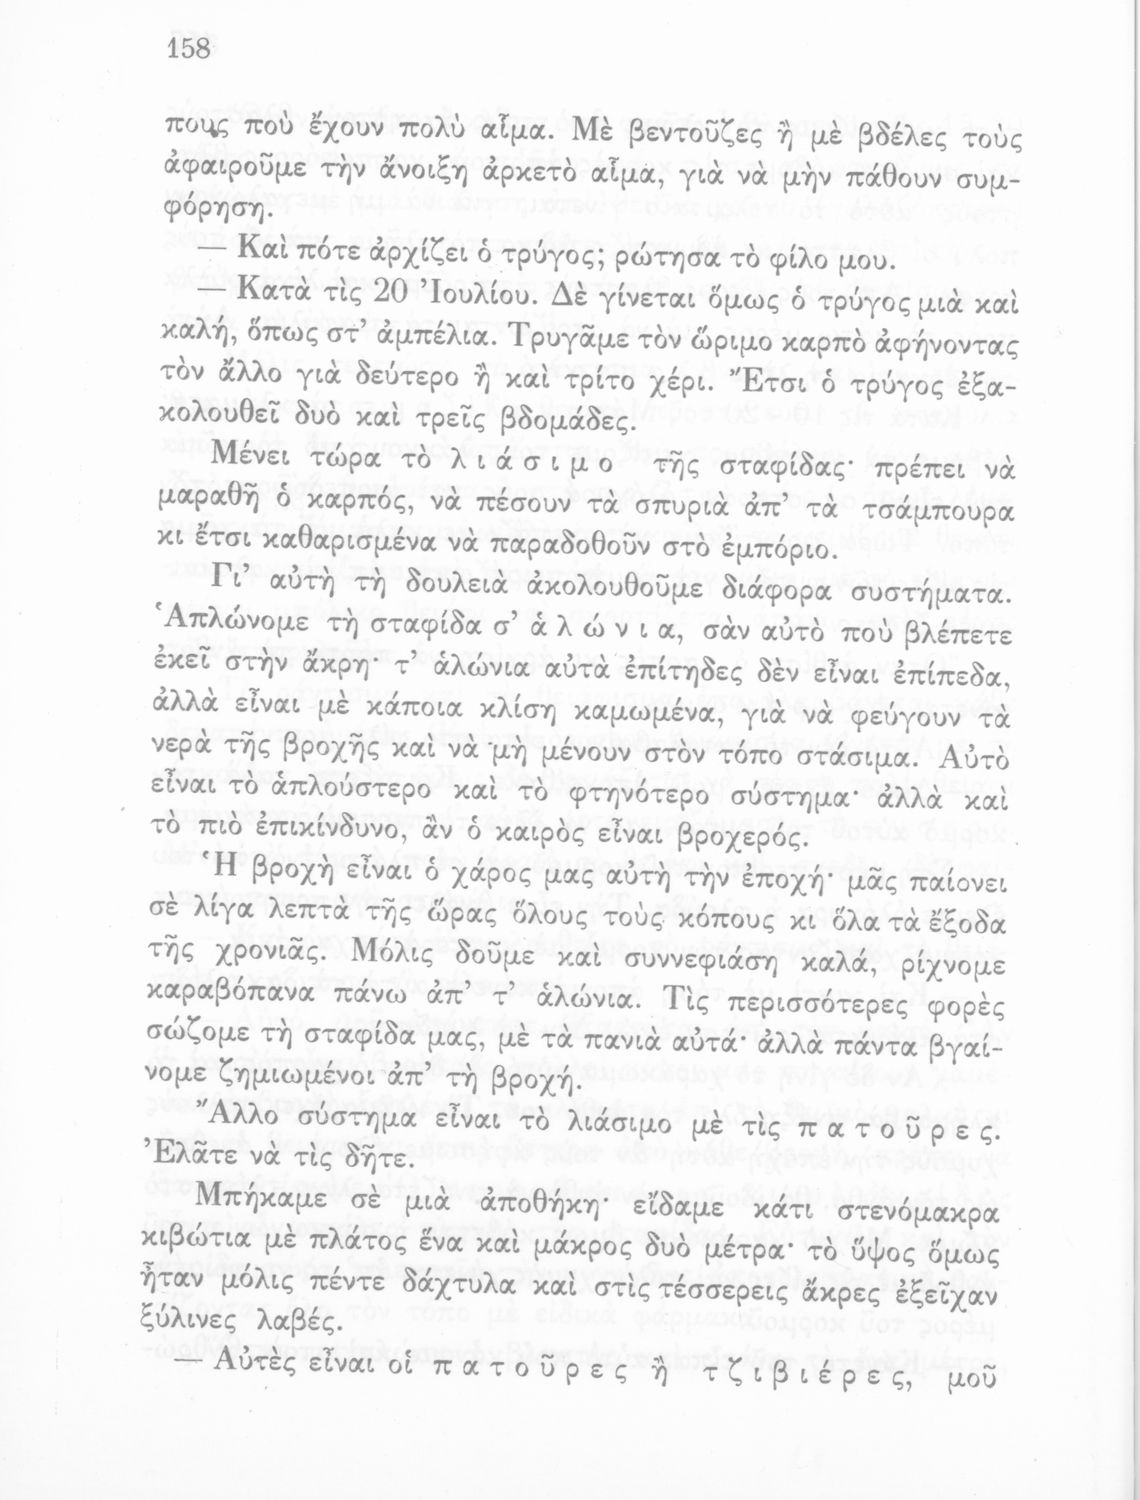 158
πους ποὺ ἔχουν πολὺ αἷμα. Μὲ βεντοῦζες ἢ μὲ βδέλες τοὺς
ἀφαιροῦμε τὴν ἄνοιξη ἀρκετὸ αἷμα, γιὰ νὰ μὴν πάθουν συμ-
φόρηση.
— Καὶ πότε ἀρχίζει ὁ τρύγος; ρώτησα τὸ φίλο μου.
— Κατὰ τὶς 20 Ἰουλίου. Δὲ γίνεται ὅμως ὁ τρύγος μιὰ καὶ
καλή, ὅπως στ’ ἀμπέλια. Τρυγᾶμε τὸν ὥριμο καρπὸ ἀφήνοντας
τὸν ἄλλο γιὰ δεύτερο ἢ καὶ τρίτο χέρι. Ἔτσι ὁ τρύγος ἐξα-
κολουθεῖ δυὸ καὶ τρεῖς βδομάδες.
Μένει τώρα τὸ λ ι ά σ ι μ ο τῆς σταφίδας· πρέπει νὰ
μαραθῆ ὁ καρπός, νὰ πέσουν τὰ σπυριὰ ἀπ’ τὰ τσάμπουρα
κι ἔτσι καθαρισμένα νὰ παραδοθοῦν στὸ ἐμπόριο.
Γι’ αὐτὴ τὴ δουλειὰ ἀκολουθοῦμε διάφορα συστήματα.
Ἁπλώνομε τὴ σταφίδα σ’ ἁ λ ώ ν ι α, σὰν αὐτὸ ποὺ βλέπετε
ἐκεῖ στὴν ἄκρη· τ’ ἁλώνια αὐτὰ ἐπίτηδες δὲν εἶναι ἐπίπεδα,
ἀλλὰ εἶναι μὲ κάποια κλίση καμωμένα, γιὰ νὰ φεύγουν τὰ
νερὰ τῆς βροχῆς καὶ νὰ μὴ μένουν στὸν τόπο στάσιμα. Αὐτὸ
εἶναι τὸ ἁπλούστερο καὶ τὸ φτηνότερο σύστημα· ἀλλὰ καὶ
τὸ πιὸ ἐπικίνδυνο, ἂν ὁ καιρὸς εἶναι βροχερός.
Ἡ βροχὴ εἶναι ὁ χάρος μας αὐτὴ τὴν ἐποχή· μᾶς παίονει
σὲ λίγα λεπτὰ τῆς ὥρας ὅλους τοὺς κόπους κι ὅλα τὰ ἔξοδα
τῆς χρονιᾶς. Μόλις δοῦμε καὶ συννεφιάση καλά, ρίχνομε
καραβόπανα πάνω ἀπ’ τ’ ἁλώνια. Τὶς περισσότερες φορὲς
σώζομε τὴ σταφίδα μας, μὲ τὰ πανιὰ αὐτά· ἀλλὰ πάντα βγαί-
νομε ζημιωμένοι ἀπ’ τὴ βροχή.
Ἄλλο σύστημα εἶναι τὸ λιάσιμο μὲ τὶς π α τ ο ῦ ρ ε ς.
Ἐλᾶτε νὰ τὶς δῆτε.
Μπήκαμε σὲ μιὰ ἀποθήκη· εἴδαμε κάτι στενόμακρα
κιβώτια μὲ πλάτος ἕνα καὶ μάκρος δυὸ μέτρα· τὸ ὕψος ὅμως
ἦταν μόλις πέντε δάχτυλα καὶ στὶς τέσσερεις ἄκρες ἐξεῖχαν
ξύλινες λαβές.
— Αὐτὲς εἶναι οἱ π α τ ο ῦ ρ ε ς ἢ τ ζ ι β ι έ ρ ε ς, μοῦ